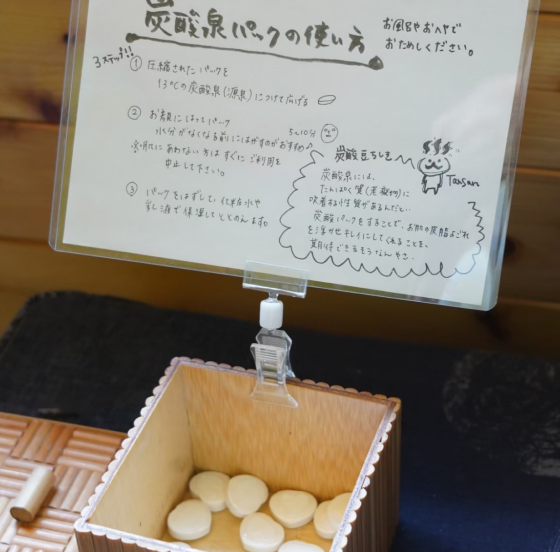 炭酸泉パックの使い方
お風呂やおヘヤで
おためしください。
3ステップ!!
① 圧縮されたパックを
13℃の炭酸泉(源泉)につけて広げる
② お顔にはってパック
水分がなくなる前にはがすのがおすすめ♪
5〜10分
※肌にあわない方はすぐにご利用を
中止して下さい。
③ パックをはずして、化粧水や
乳液で保湿してととのえます。
炭酸豆ちしき
炭酸泉には、
たんぱく質(老廃物)に
吸着する性質があるんだと…
炭酸パックをすることで、お肌の皮脂よごれ
を浮かせキレイにしてくれることを、
期待できるそうなんやさ。
Tansan